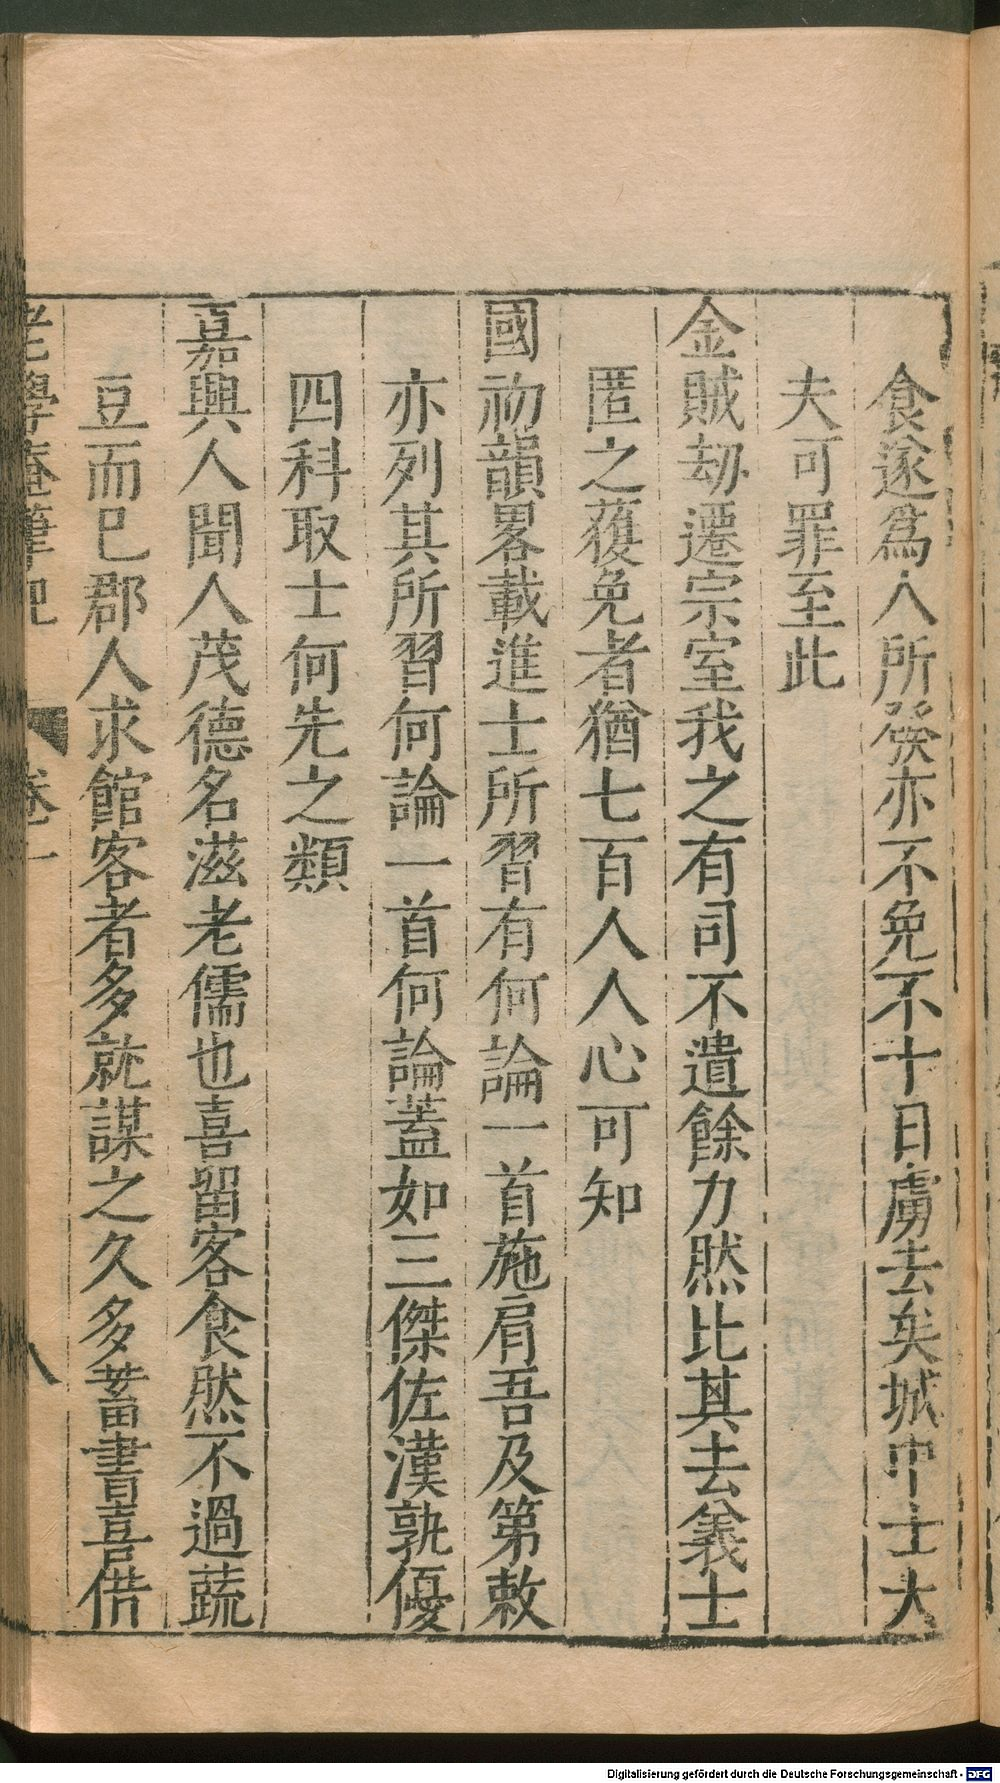 食遂爲人所發亦不免不十日虜去矣城中士大
夫可罪至此
金賊劫遷宗室我之有司不遺餘力然比其去義士
匿之獲免者猶七百人人心可知
國初韻畧載進士所習有何論一首施肩吾及第敕
亦列其所習何論一首何論蓋如三傑佐漢孰優
四科取士何先之類
嘉興人聞人茂德名滋老儒也喜留客食然不過蔬
豆而巳郡人求館客者多就謀之久多蓄書喜借
老學庵筆記 卷一 八
Digitalisierung gefördert durch die Deutsche Forschungsgemeinschaft - DFG